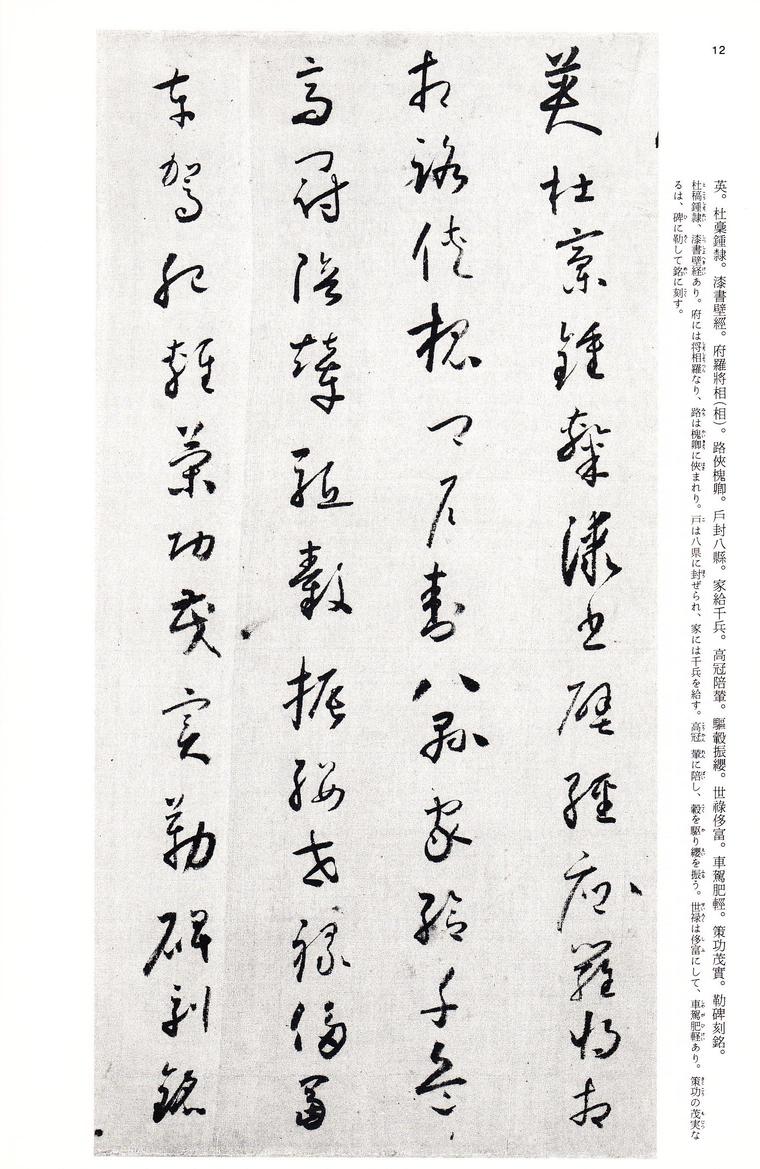 12
英。杜稾鍾隸。漆書壁經。府羅將相(相)。路俠槐卿。戶封八縣。家給千兵。高冠陪輦。驅轂振纓。世祿侈富。車駕肥輕。策功茂實。勒碑刻銘。
杜稿鍾隷、漆書壁経あり。府には将相羅なり、路は槐卿に俠まれり。戸は八県に封ぜられ、家には千兵を給す。高冠 輦に陪し、轂を駆り纓を振う。世禄は侈富にして、車駕肥軽あり。策功の茂実な
るは、碑に勒して銘に刻す。
英杜稾鍾隸漆書壁經府羅將相
相路俠槐卿戶封八縣家給千兵
高冠陪輦驅轂振纓世祿侈富
車駕肥輕策功茂實勒碑刻銘